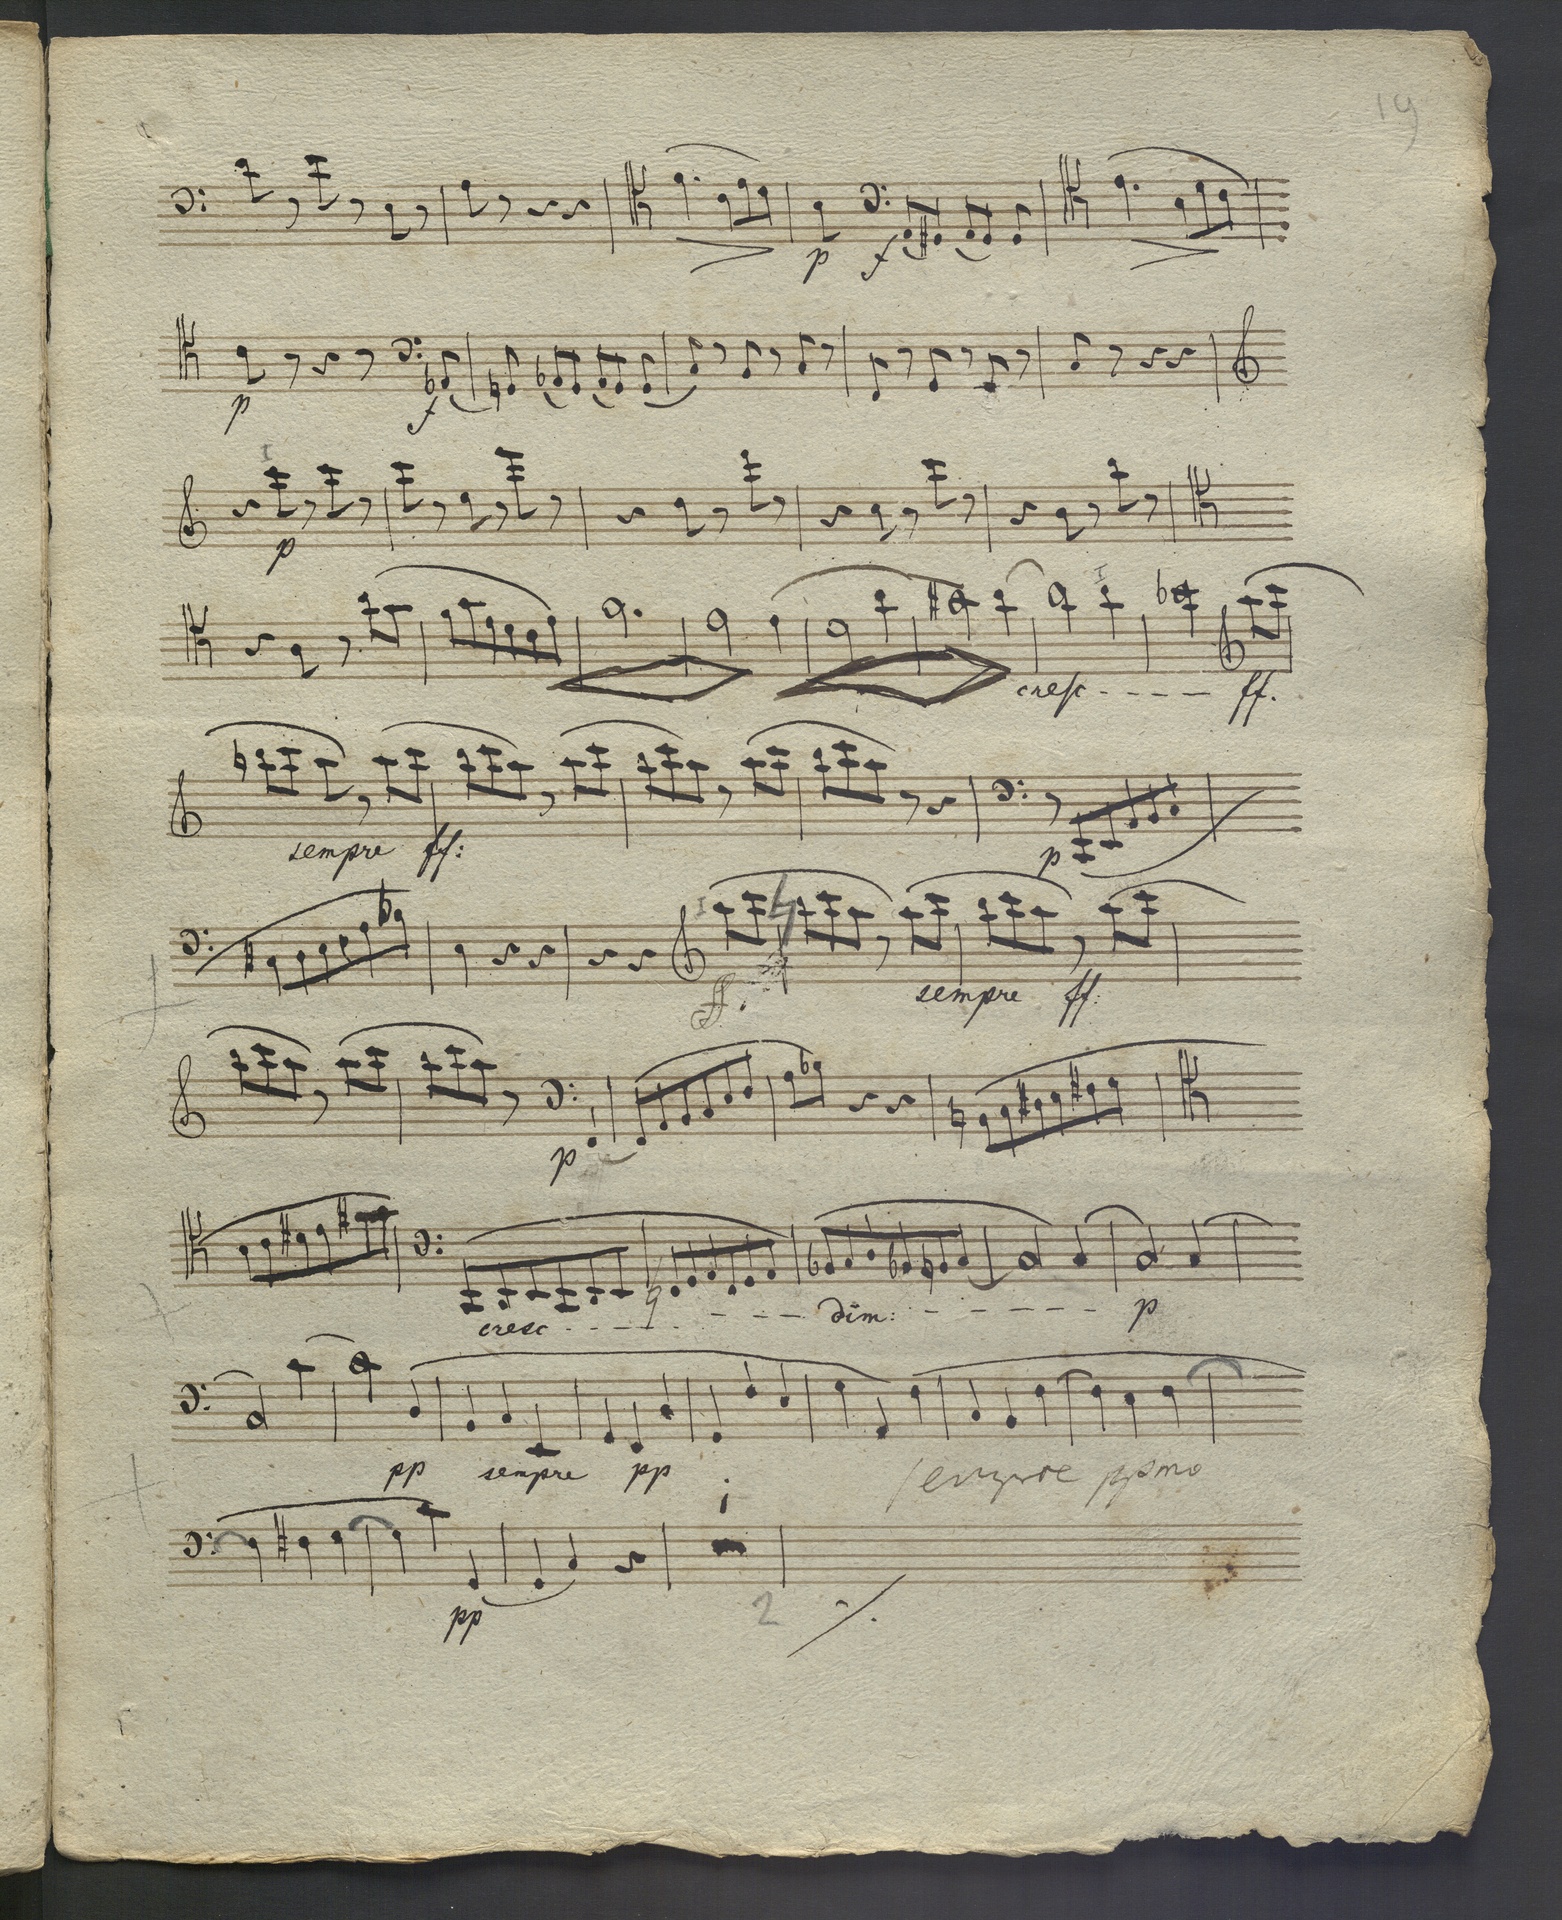 19
p f
p f
I
p
I
cresc - - - - ff.
sempre ff: p
I
ff. sempre ff:
p
cresc - - - - - - - dim: - - - - - p
pp sempre pp sempre ppmo
1
pp
2